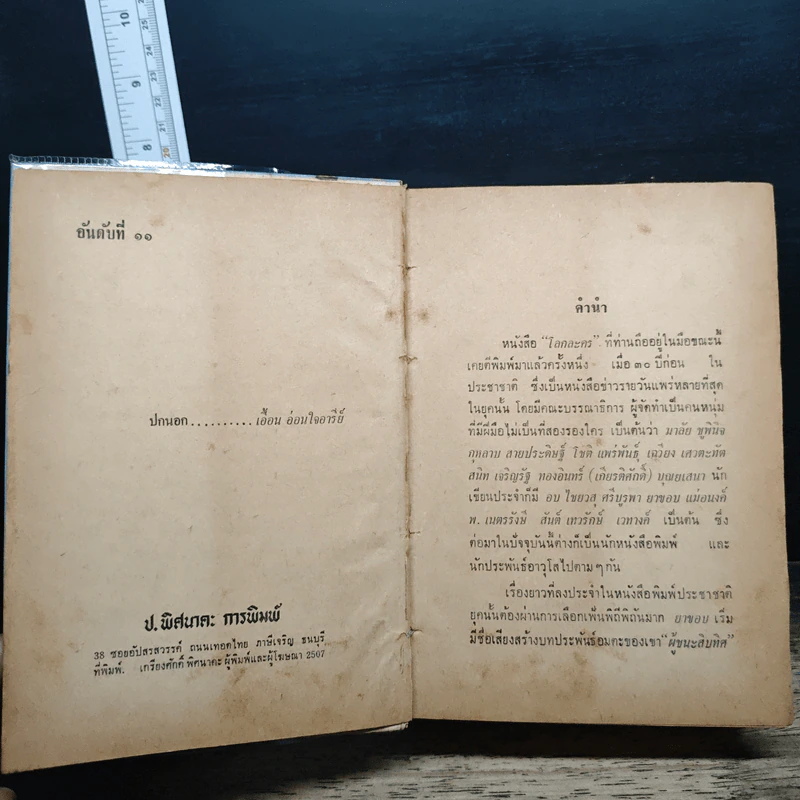 อันดับที่ ๑๑
ปกนอก..........เอื้อน อ่อนใจอารีย์
ป. พิศนาคะ การพิมพ์
38 ซอยอัปสรสวรรค์ ถนนเทอดไทย ภาษีเจริญ ธนบุรี
ที่พิมพ์. เกรียงศักดิ์ พิศนาคะ ผู้พิมพ์และผู้โฆษณา 2507
คำนำ
หนังสือ "โลกละคร" ที่ท่านถืออยู่ในมือขณะนี้
เคยตีพิมพ์มาแล้วครั้งหนึ่ง เมื่อ ๓๐ ปีก่อน ใน
ประชาชาติ ซึ่งเป็นหนังสือข่าวรายวันแพร่หลายที่สุด
ในยุคนั้น โดยมีคณะบรรณาธิการ ผู้จัดทำเป็นคนหนุ่ม
ที่มีฝีมือไม่เป็นที่สองรองใคร เป็นต้นว่า มาลัย ชูพินิจ
กุหลาบ สายประดิษฐ์ โชติ แพร่พันธุ์ เฉวียง เศวตะทัต
สนิท เจริญรัฐ ทองอินทร์ (เกียรติศักดิ์) บุณยเสนา นัก
เขียนประจำก็มี อบ ไชยวสุ ศรีบูรพา ยาขอบ แม่อนงค์
พ. เนตรรังษี สันต์ เทวรักษ์ เวทางค์ เป็นต้น ซึ่ง
ต่อมาในปัจจุบันนี้ต่างก็เป็นนักหนังสือพิมพ์ และ
นักประพันธ์อาวุโสไปตาม ๆ กัน
เรื่องยาวที่ลงประจำในหนังสือพิมพ์ประชาชาติ
ยุคนั้นต้องผ่านการเลือกเฟ้นพิถีพิถันมาก ยาขอบ เริ่ม
มีชื่อเสียงสร้างบทประพันธ์อมตะของเขา "ผู้ชนะสิบทิศ"
10
9
8
25
24
23
22
21
20